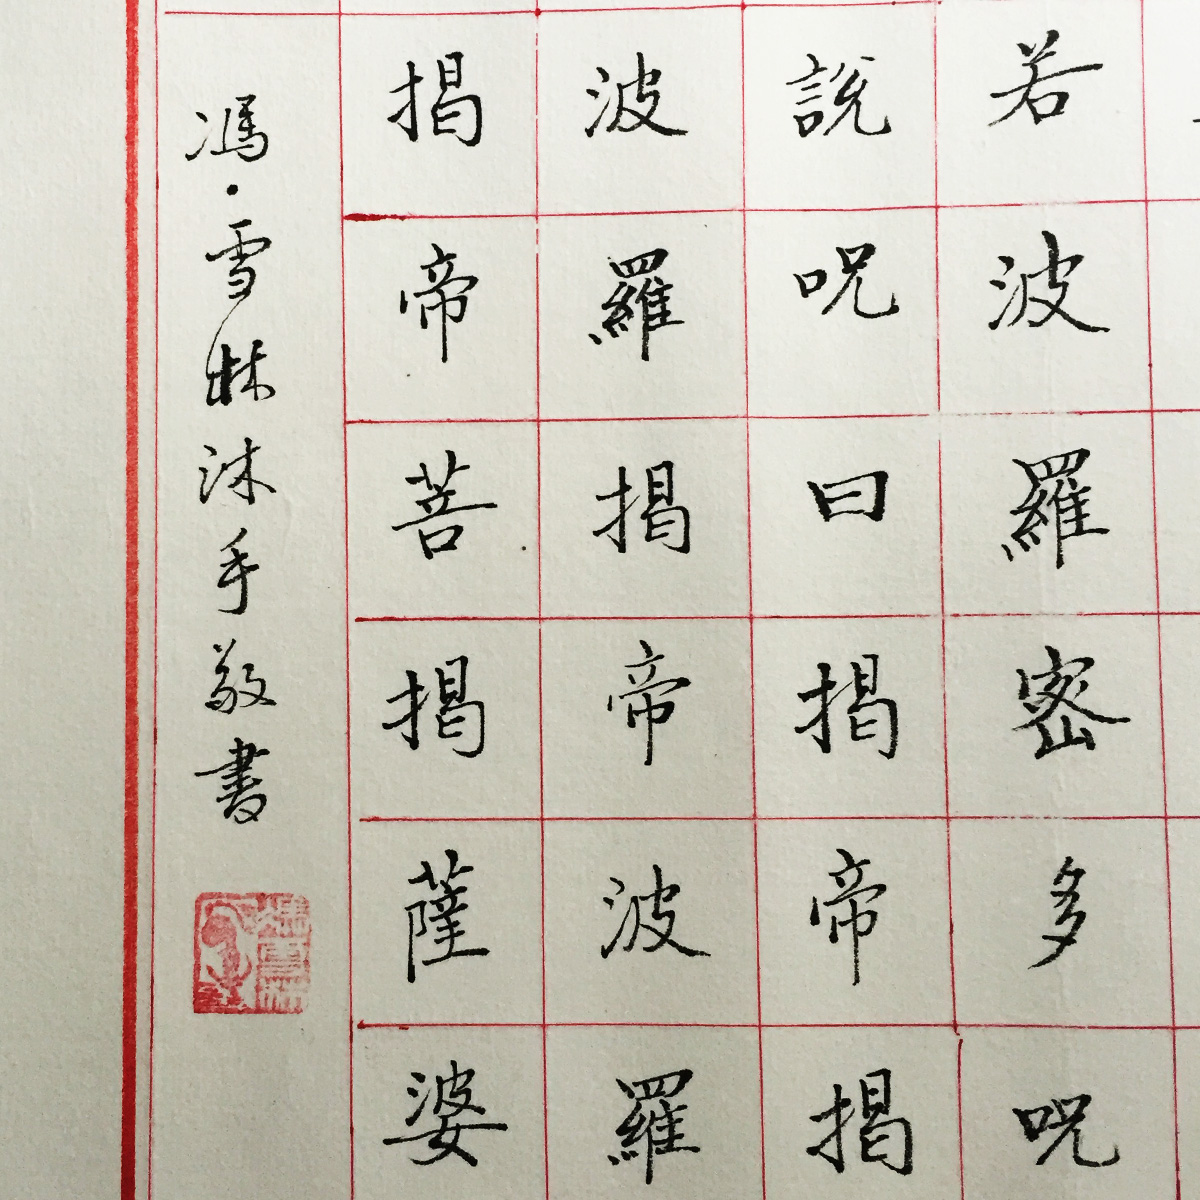 若波羅密多呪
說呪曰揭帝揭
波羅揭帝波羅
揭帝菩揭薩婆
馮·雪林沐手敬書